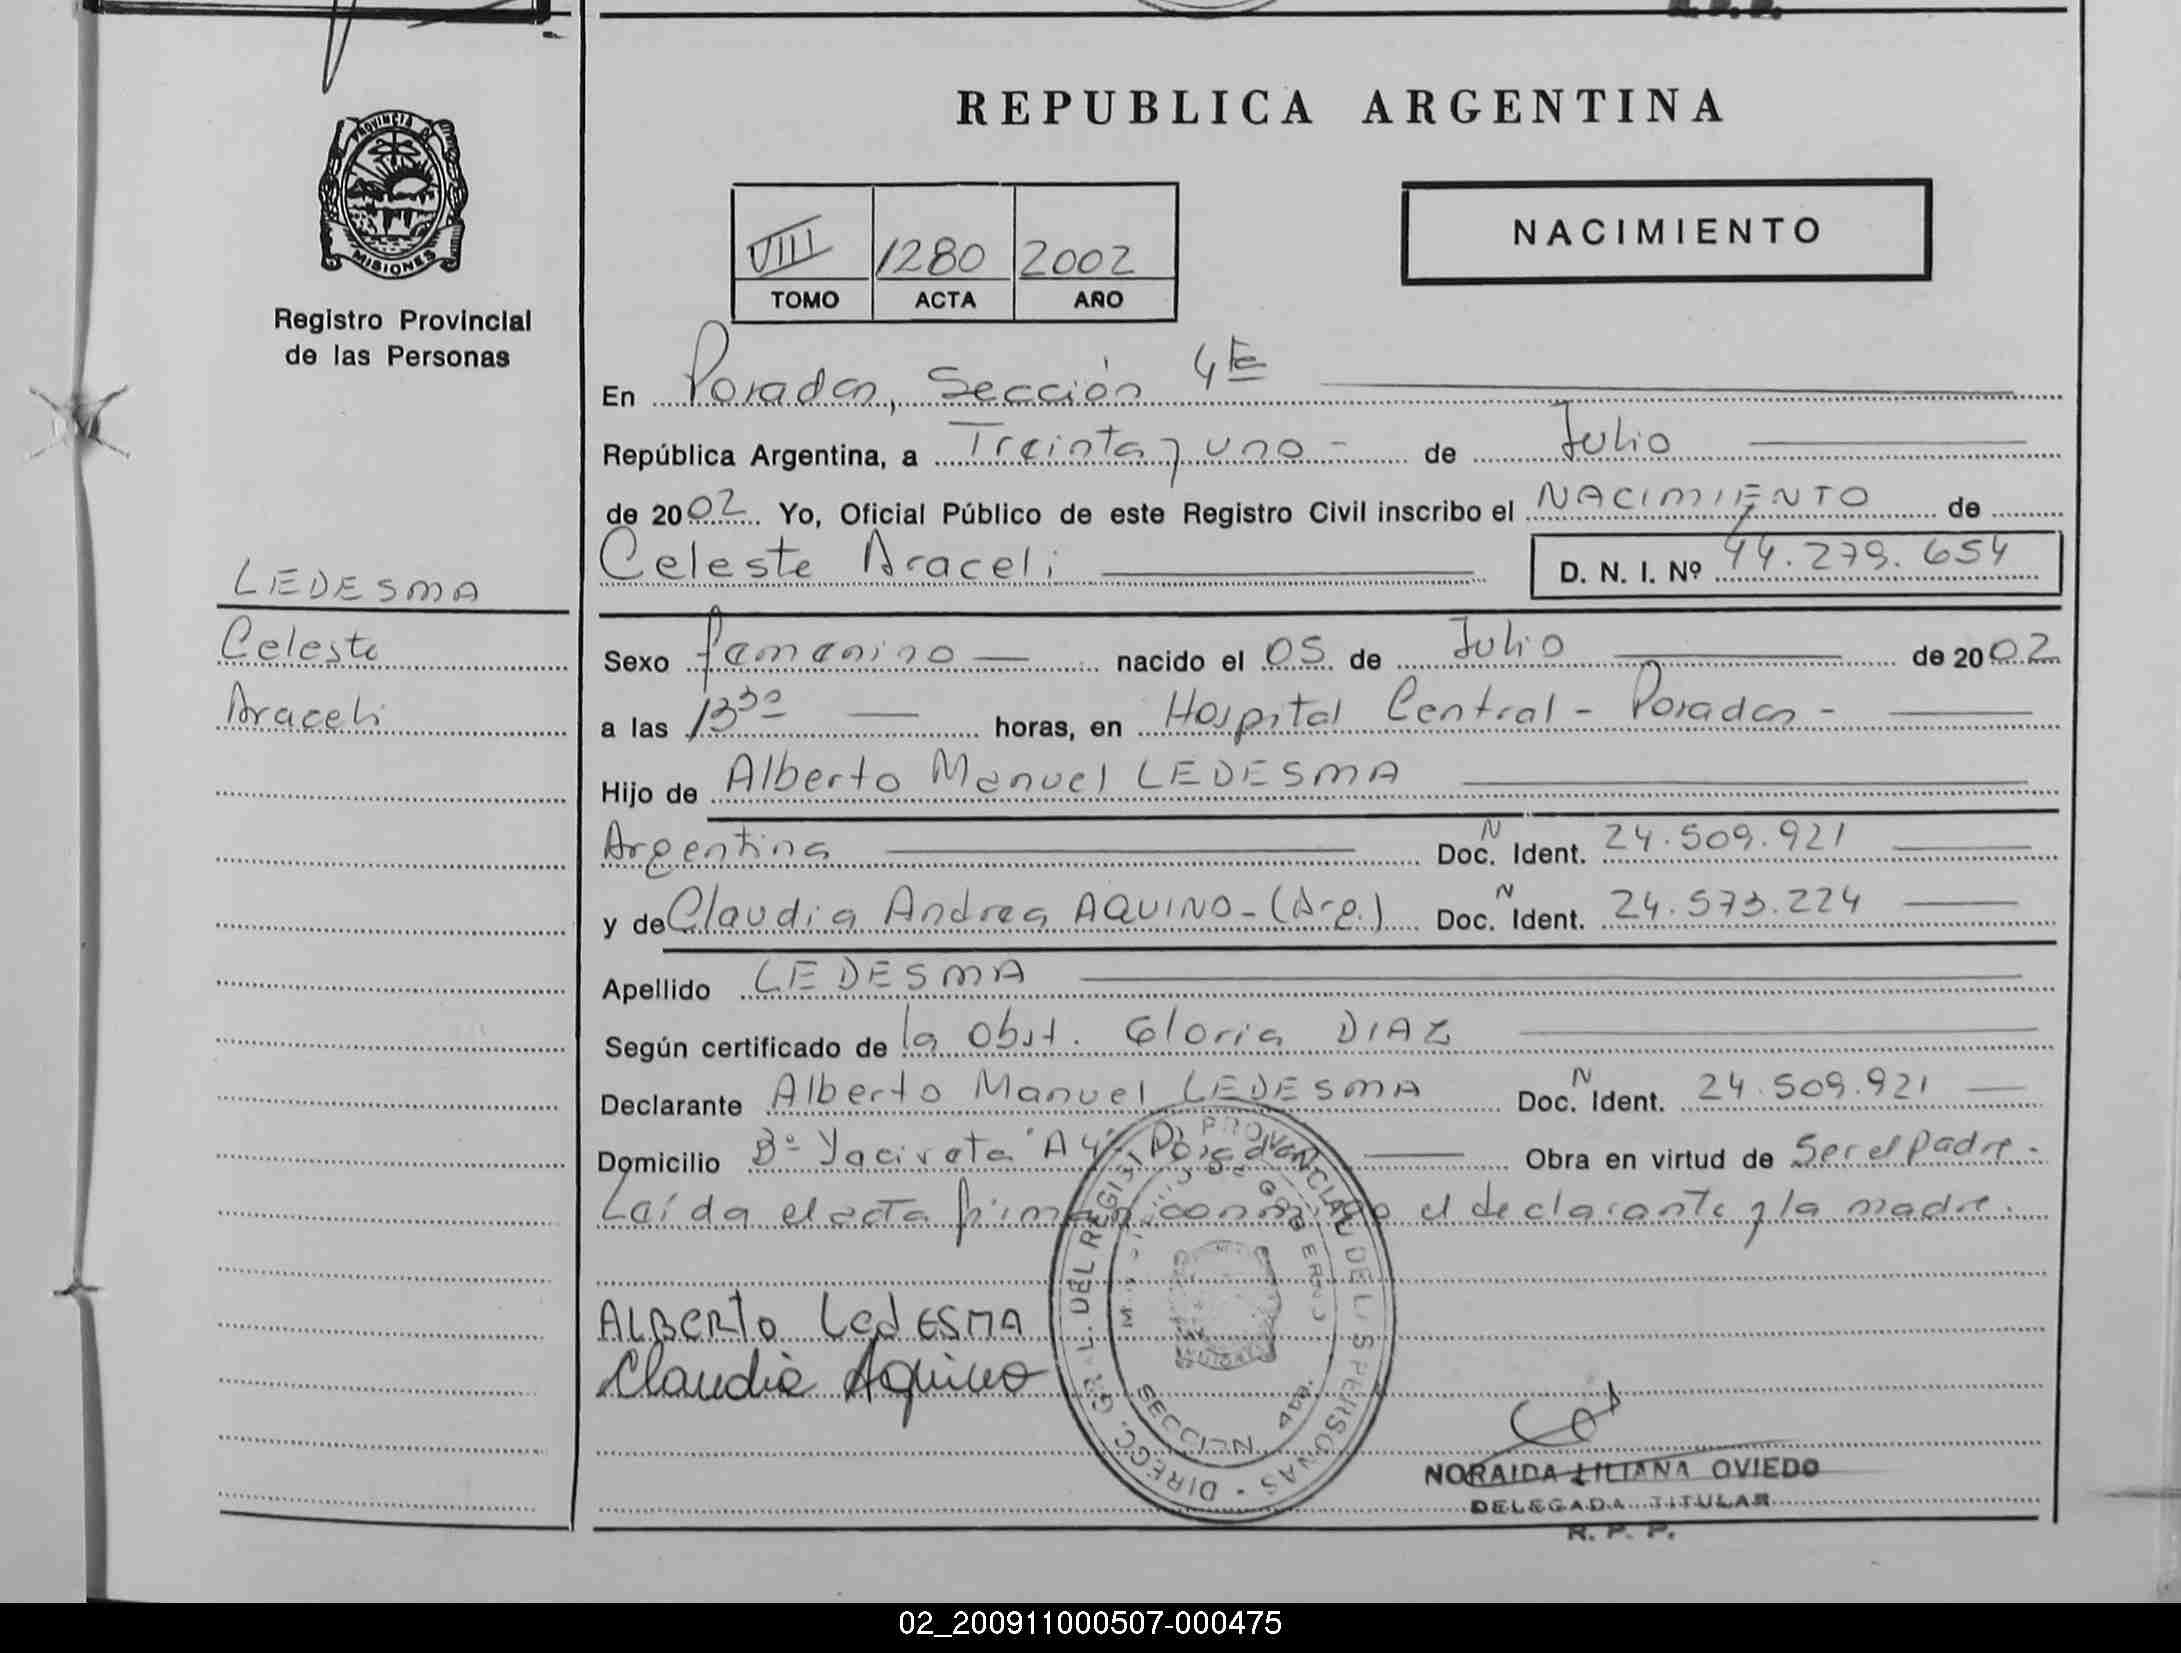 R. P. P.
REPUBLICA ARGENTINA
PROVINCIA DE
MISIONES
Registro Provincial
de las Personas
VIII 1280 2002
TOMO ACTA AÑO
NACIMIENTO
En Posadas, Sección 4ta
República Argentina, a Treinta y uno - de Julio
de 2002 Yo, Oficial Público de este Registro Civil inscribo el NACIMIENTO de
Celeste Araceli D. N. I. Nº 44.279.654
LEDESMA
Celeste
Araceli
Sexo femenino nacido el 05 de Julio de 2002
a las 13 30 horas, en Hospital Central - Posadas -
Hijo de Alberto Manuel LEDESMA
Argentina Doc. N Ident. 24.509.921
y de Claudia Andrea AQUINO - (Arg.) Doc. N Ident. 24.573.224
Apellido LEDESMA
Según certificado de la Obst. Gloria DIAZ
Declarante Alberto Manuel LEDESMA Doc. N Ident. 24.509.921
Domicilio Bº Yacireta "A4" Posadas Obra en virtud de Ser el Padre.
Leída el acta firman conmigo el declarante y la madre.
ALBERTO LedESMA
Claudia Aquino
DIRECC. GRAL. DEL REGIST. PROVINCIAL DE LAS PERSONAS
DE GOBIERNO
SECCION
NORAIDA LILIANA OVIEDO
DELEGADA TITULAR
R. P. P.
02_200911000507-000475